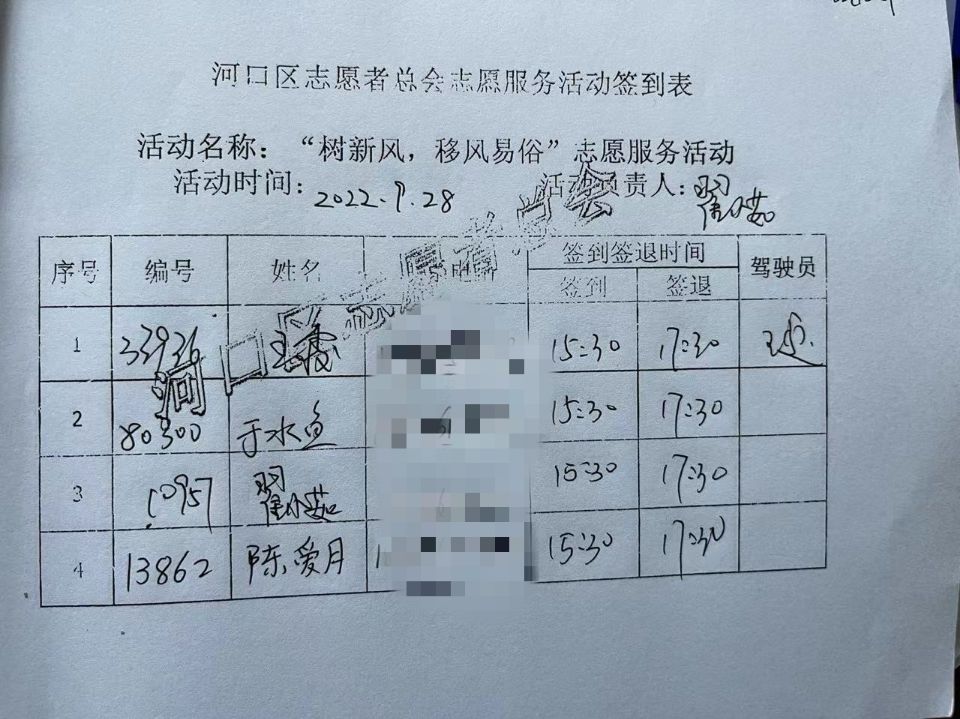 河口区志愿者总会志愿服务活动签到表
活动名称：“树新风，移风易俗”志愿服务活动
活动时间：2022.9.28 活动负责人：翟小茹
序号 编号 姓名 签到签退时间 驾驶员
签到 签退
1 33936 15:30 17:30
2 80300 于水鱼 15:30 17:30
3 10957 翟小茹 15:30 17:30
4 13862 陈爱月 15:30 17:30
河口区志愿者总会